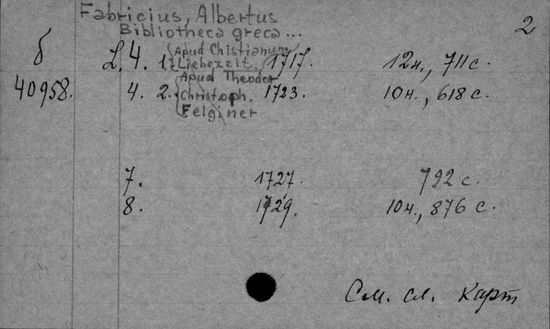 Fabricius, Albertus
Bibliotheca greca ... 2
б L. 4. 1. Apud Chistianum Liebezeit. 1717. 12н., 711 с.
40958. 4. 2. Apud Theodor Christoph. Felginer 1723. 10н., 618 с.
7. 1727. 792 с.
8. 1729. 10н., 876 с.
См. сл. карт